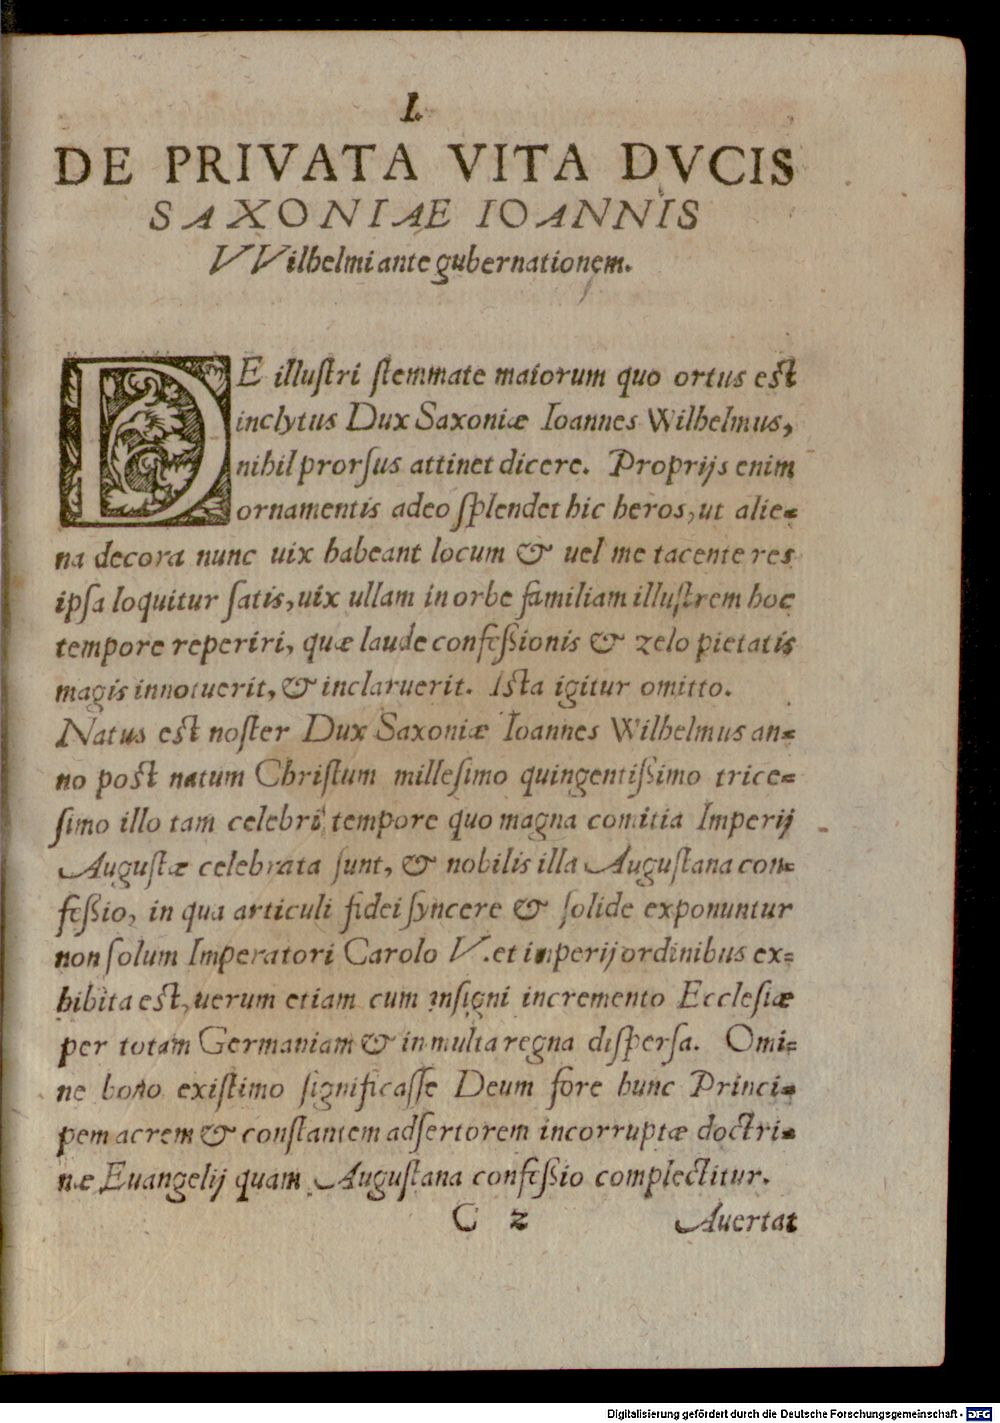 I.
DE PRIVATA VITA DVCIS
SAXONIAE IOANNIS
VVilhelmi ante gubernationem.
DE illuſtri ſtemmate maiorum quo ortus eſt
inclytus Dux Saxoniæ Ioannes Wilhelmus,
nihil prorſus attinet dicere. Proprijs enim
ornamentis adeo ſplendet hic heros, ut alie=
na decora nunc uix habeant locum & uel me tacente res
ipſa loquitur ſatis, uix ullam in orbe familiam illuſtrem hoc
tempore reperiri, quæ laude confeßionis & zelo pietatis
magis innotuerit, & inclaruerit. Iſta igitur omitto.
Natus eſt noſter Dux Saxoniæ Ioannes Wilhelmus an=
no poſt natum Chriſtum milleſimo quingentißimo trice=
ſimo illo tam celebri tempore quo magna comitia Imperij
Auguſtæ celebrata ſunt, & nobilis illa Auguſtana con=
feßio, in qua articuli fidei ſyncere & ſolide exponuntur
non ſolum Imperatori Carolo V. et imperij ordinibus ex=
hibita eſt, uerum etiam cum inſigni incremento Eccleſiæ
per totam Germaniam & in multa regna diſperſa. Omi=
ne bono exiſtimo ſignificaſſe Deum fore hunc Princi=
pem acrem & conſtantem adſertorem incorruptæ doctri=
næ Euangelij quam Auguſtana confeßio complectitur.
C 2 Auertat
Digitalisierung gefördert durch die Deutsche Forschungsgemeinschaft - DFG